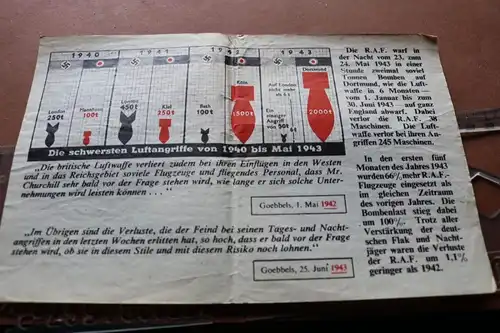 1940 1941 1942 1943
London
250t
Mannheim
100t
London
450t
Kiel
250t
Bath
100t
Köln
1500t
Auf London
nicht mehr
als à
Ein-
maliger
Angriff
von
Dortmund
2000t
Die schwersten Luftangriffe von 1940 bis Mai 1943
„Die britische Luftwaffe verliert zudem bei ihren Einflügen in den Westen
und in das Reichsgebiet soviele Flugzeuge und fliegendes Personal, dass Mr.
Churchill sehr bald vor der Frage stehen wird, wie lange er sich solche Unter-
nehmungen wird leisten können . . . ."
Goebbels, 1. Mai 1942
„Im Übrigen sind die Verluste, die der Feind bei seinen Tages- und Nacht-
angriffen in den letzten Wochen erlitten hat, so hoch, dass er bald vor der Frage
stehen wird, ob sie in diesem Stile und mit diesem Risiko noch lohnen."
Goebbels, 25. Juni 1943
Die R.A.F. warf in
der Nacht vom 23. zum
24. Mai 1943 in einer
Stunde zweimal soviel
Tonnen Bomben auf
Dortmund, wie die Luft-
waffe in 6 Monaten—
vom 1. Januar bis zum
30. Juni 1943 —auf ganz
England abwarf. Dabei
verlor die R.A.F. 38
Maschinen. Die Luft-
waffe verlor bei ihren An-
griffen 245 Maschinen.
In den ersten fünf
Monaten des Jahres 1943
wurden 66% mehr R.A.F.-
Flugzeuge eingesetzt als
im gleichen Zeitraum
des vorigen Jahres. Die
Bombenlast stieg dabei
um 100%. Trotz aller
Verstärkung der deut-
schen Flak und Nacht-
jäger waren die Verluste
der R.A.F. um 1,1%
geringer als 1942.